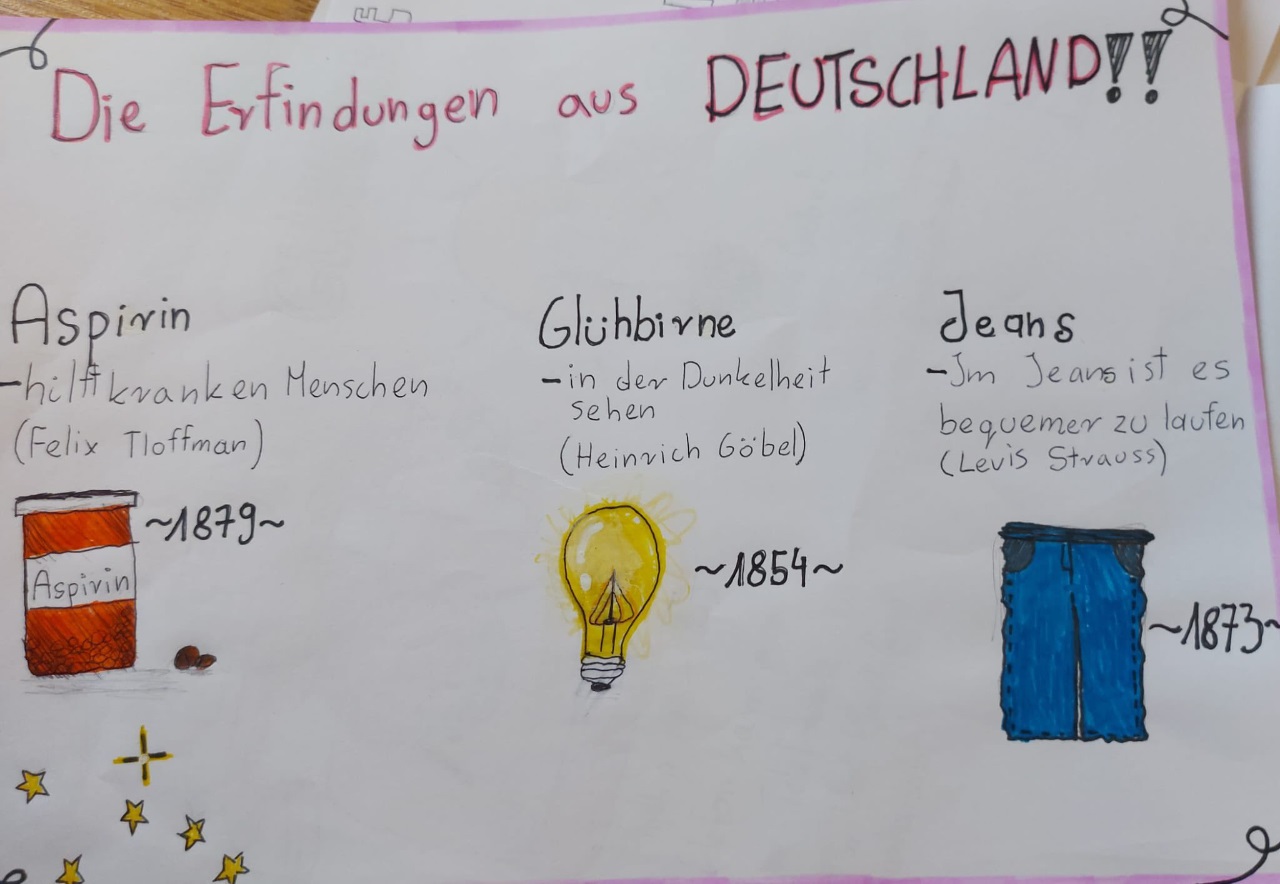 Die Erfindungen aus DEUTSCHLAND!!
Aspirin
-hilft kranken Menschen
(Felix Tloffman)
~1879~
Aspirin
Glühbirne
-in der Dunkelheit
sehen
(Heinrich Göbel)
~1854~
Jeans
-Im Jeans ist es
bequemer zu laufen
(Levis Strauss)
~1873~